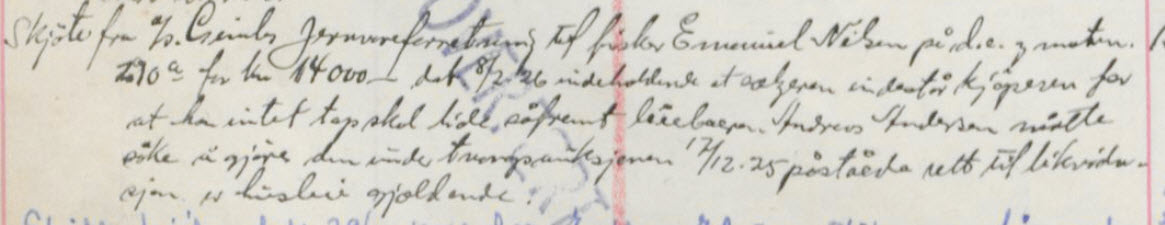 Skjöte fra a/s. Jernvareforretning til fisker Emanuel Nilsen på d.e. g matr.n.
270 a for kr 14000 – dat 8/2.26 indeholdende at sælgeren indestår kjöperen for
at han intet tap skal lide såfremt leieboeren Andreas Andersen måtte
söke å gjöre den under tvangsauksjonen 17/12.25 påståede rett til likvida-
sjon av husleie gjældende.